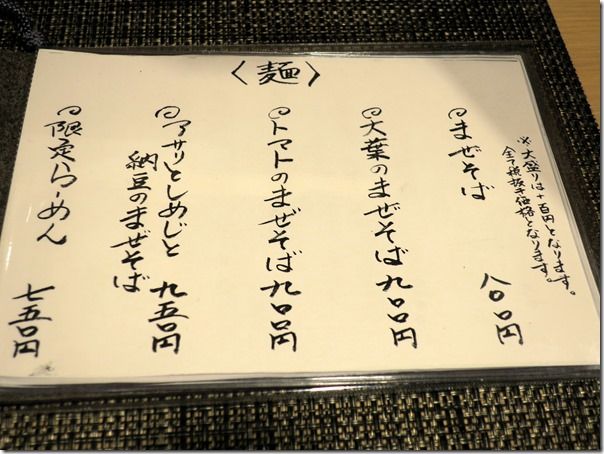 〈麺〉
※大盛りは+百円となります。
全て税抜き価格となります。
◎まぜそば 八〇〇円
◎大葉のまぜそば 九〇〇円
◎トマトのまぜそば 九〇〇円
◎アサリとしめじと
納豆のまぜそば 九五〇円
◎限定らーめん 七五〇円